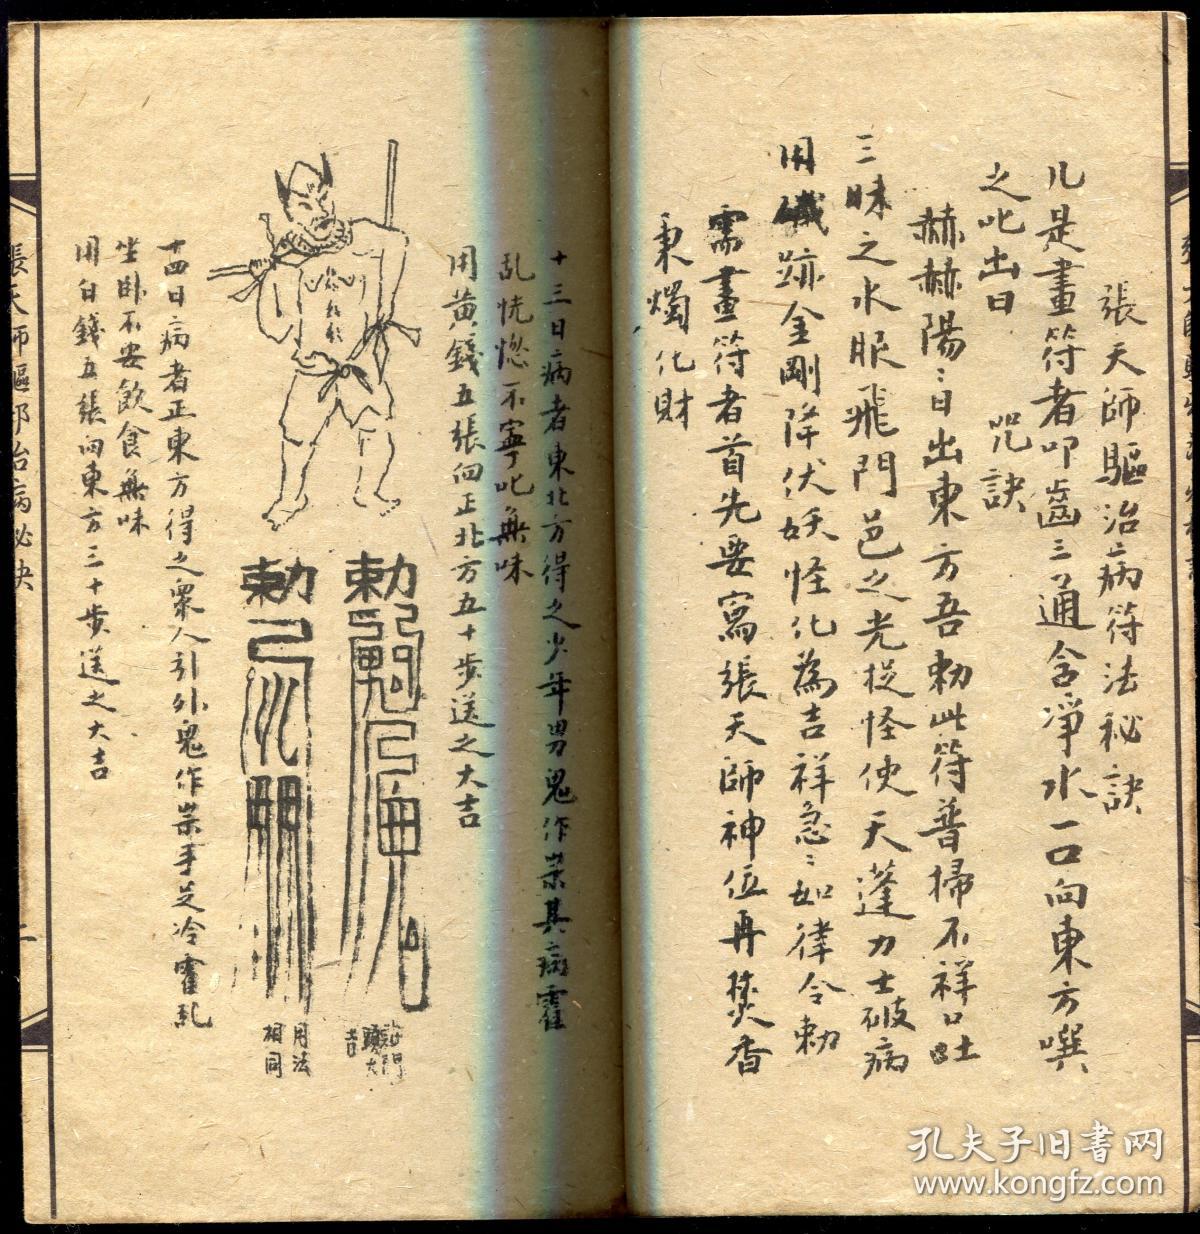 張天師驅治病符法秘訣
凡是畫符者叩齒三通含淨水一口向東方噀
之叱出曰　咒訣
赫赫陽:日出東方吾勅此符普掃不祥口吐
三昧之水眼飛門邑之光捉怪使天蓬力士破病
用鐵跡金剛降伏妖怪化為吉祥急:如律令勅
需畫符者首先要寫張天師神位再焚香
秉燭化財
十三日病者東北方得之少年男鬼作祟其病霍
乱恍惚不寧叱無味
用黃錢五張向正北方五十步送之大吉
勅
貼門
頭大
吉
勅
用法
相同
十四日病者正東方得之眾人引外鬼作祟手足冷霍乱
坐卧不安飲食無味
用白錢五張向東方三十步送之大吉
張天師驅邪治病秘訣
二
孔夫子旧书网
www.kongfz.com